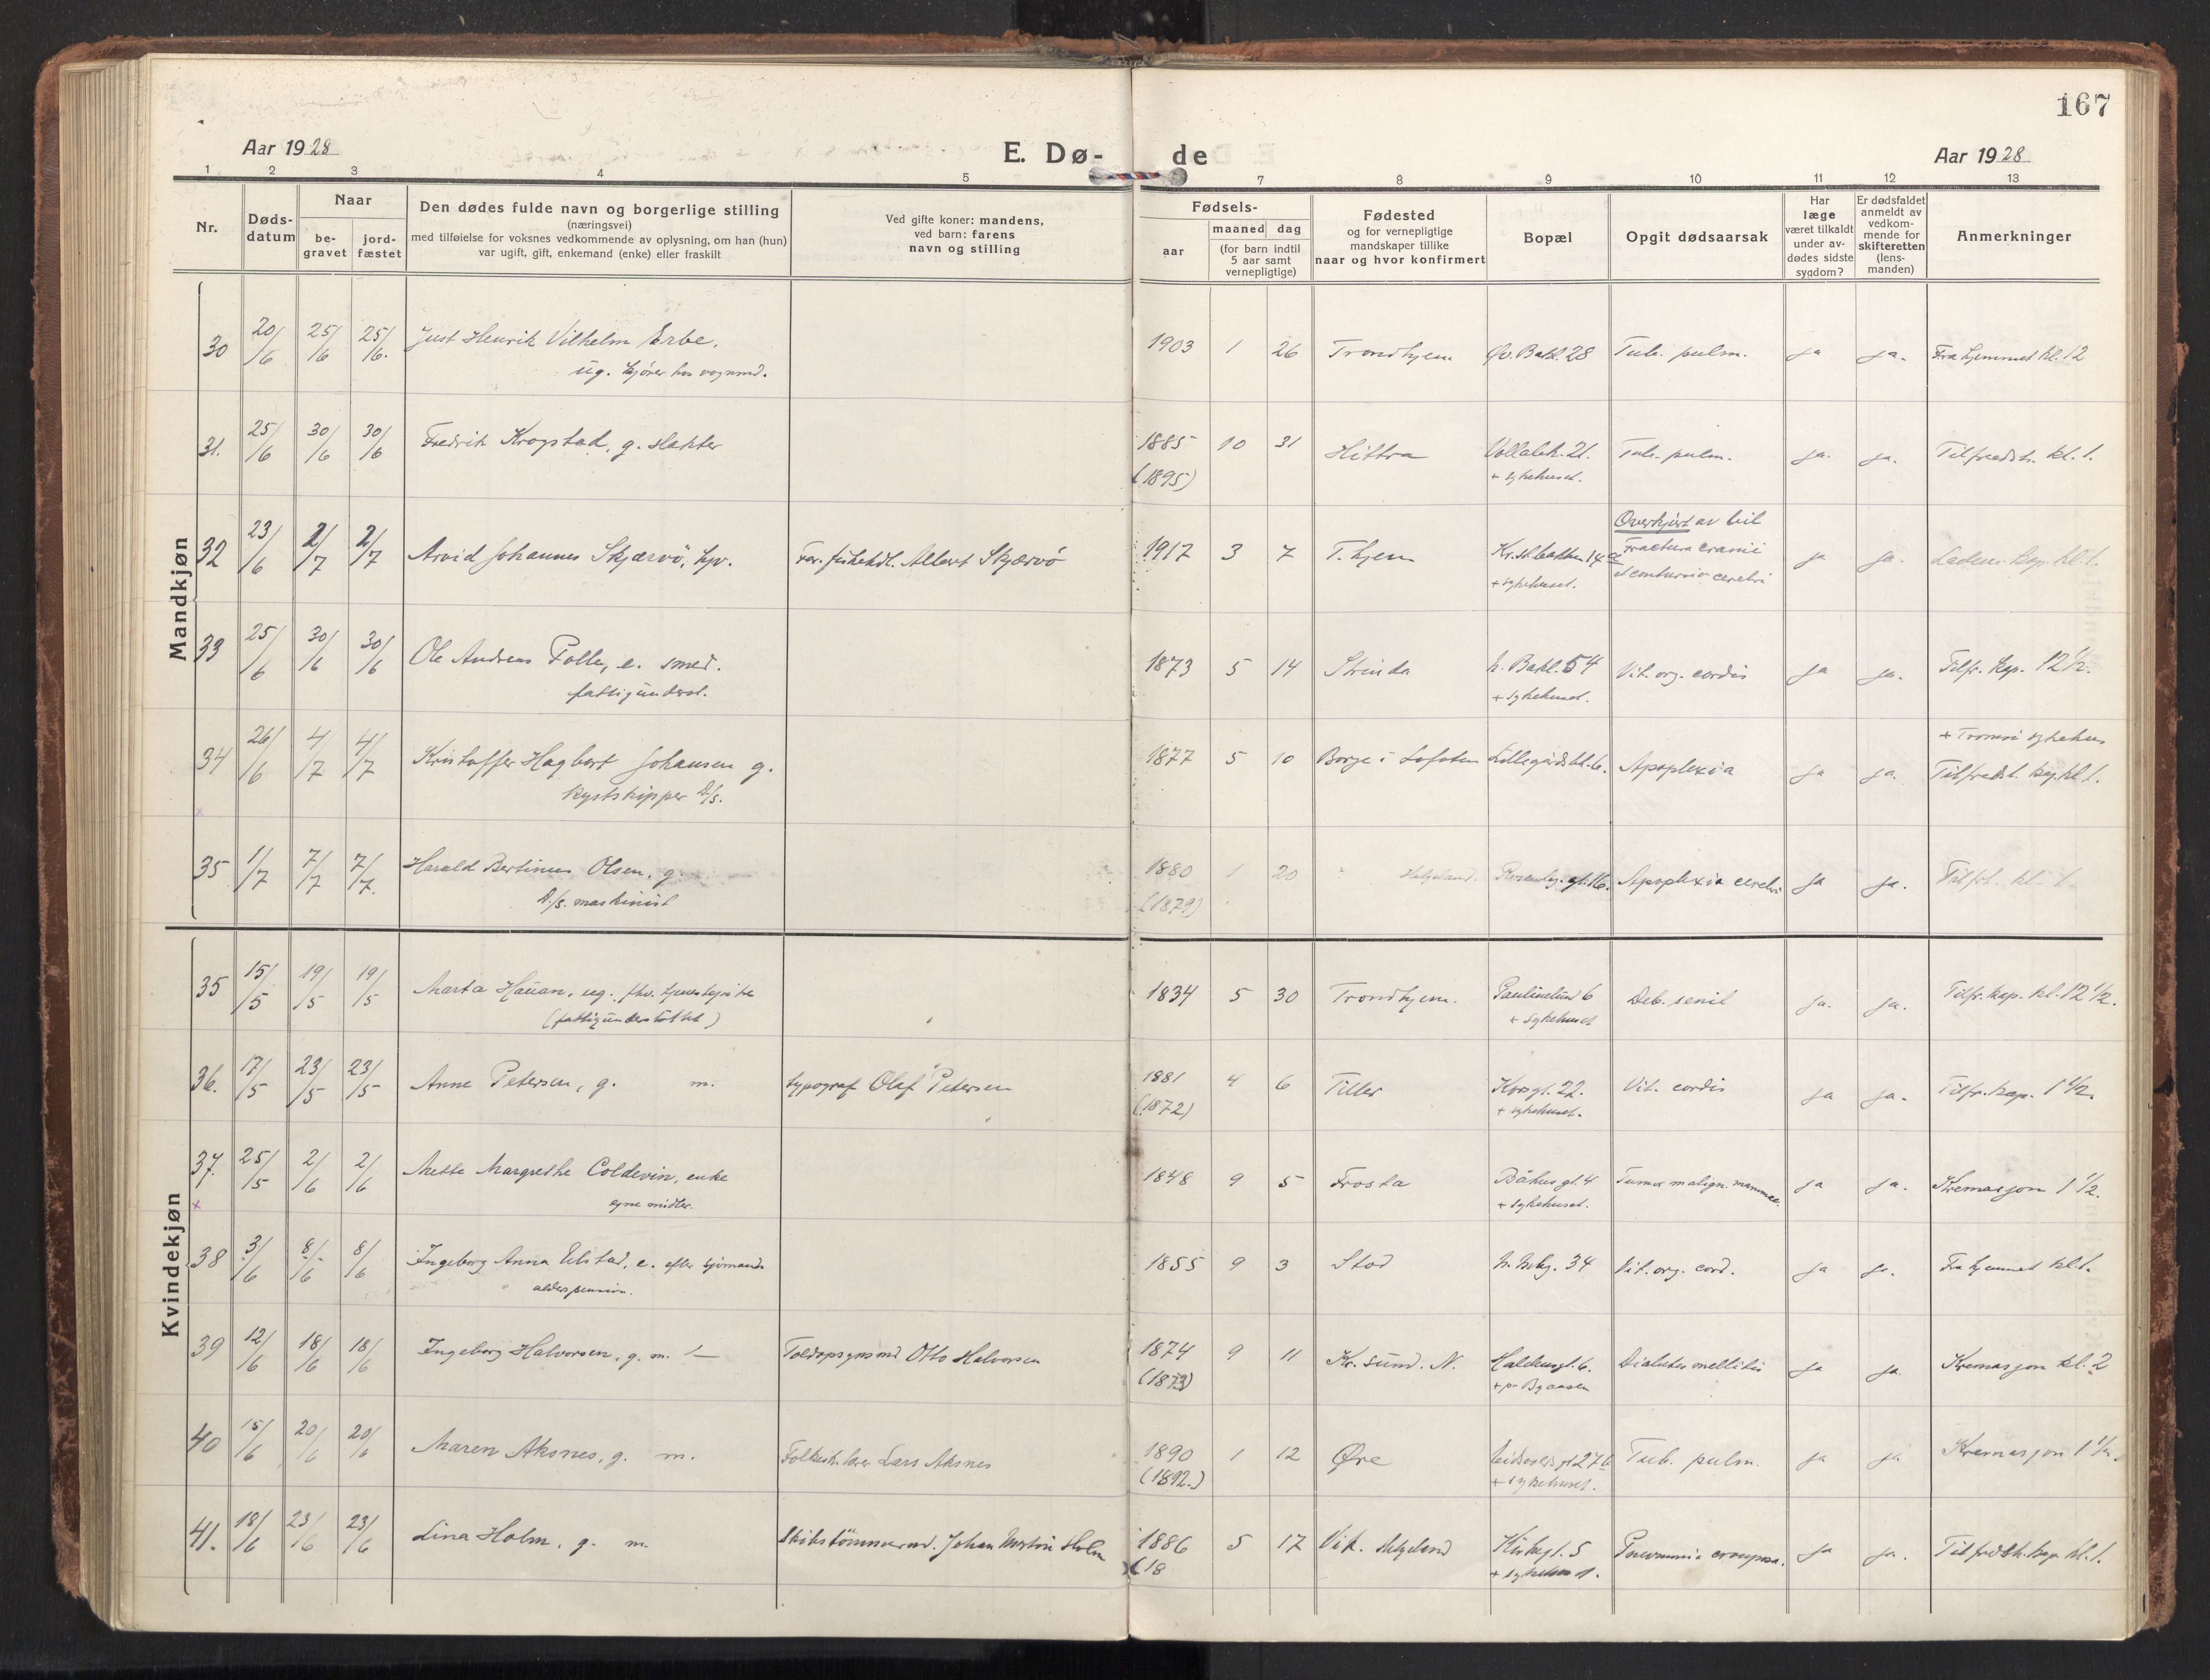 167
Aar 1928
E. Dø-
de
Aar 1928
1 2 3 4 5 7 8 9 10 11 12 13
Nr.
Døds-
datum
Naar
be-
gravet
jord-
fæstet
Den dødes fulde navn og borgerlige stilling
(næringsvei)
med tilføielse for voksnes vedkommende av oplysning, om han (hun)
var ugift, gift, enkemand (enke) eller fraskilt
Ved gifte koner: mandens,
ved barn: farens
navn og stilling
Fødsels-
aar
maaned dag
(for barn indtil
5 aar samt
vernepligtige)
Fødested
og for vernepligtige
mandskaper tillike
naar og hvor konfirmert
Bopæl
Opgit dødsaarsak
Har
læge
været tilkaldt
under av-
dødes sidste
sygdom?
Er dødsfaldet
anmeldt av
vedkom-
mende for
skifteretten
(lens-
manden)
Anmerkninger
Mandkjøn
30 20/6 25/6 25/6. Just Henrik Vilhelm Erbe. 1903 1 26 Trondhjem Øv. Bakl. 28 Tub. pulm. ja ja. Fra hjemmet kl. 12
ug. kjører hos vognmd.
31. 25/6 30/6 30/6 Fredrik Krogstad, g. slakter 1885 10 31 Hittra Vollabk. 21. Tub. pulm. ja. ja. Tilfredsh. kl. 1.
(1895) + sykehuset.
Overkjørt av bil
32 23/6 2/7 2/7 Arvid Johannes Skjærvö, hjv. Far. fiskehdl. Albert Skjærvö 1917 3 7 T.hjem Kr.st.bakken 14 Fractura cranii ja ja. Lademo kap. kl. 1.
+ sykehuset. et contusio cerebri
33 25/6 30/6 30/6 Ole Andreas Folle, e. smed. 1873 5 14 Strinda N. Bakl. 54 Vit. org. cordis ja ja. Tilfr. kap. 12 1/2.
fattigunderst. + sykehuset.
+ Tromsö sykehus
34 26/6 4/7 4/7 Kristoffer Hagbart Johansen g. 1877 5 10 Borge i Lofoten Lillegårdsbk. 6. Apoplexia ja ja. Tilfredsh. kap. kl. 1.
kystskipper D/s.
35 1/7 7/7 7/7. Harald Bertinus Olsen, g. 1880 1 20 Helgeland. Rosenbg. gt. 16. Apoplexia cerebri ja ja. Tilfr. kl. 1.
D/s. maskinist (1879)
Kvindekjøn
35 15/5 19/5 19/5 Marta Hauan, ug. fhv. tjenestepike 1834 5 30 Trondhjem. Paulinelund 6 Deb. senil ja. ja. Tilfr. kap. kl. 12 1/2.
(fattigunderstöttet) + sykehuset
36. 17/5 23/5 23/5 Anne Petersen, g. m. typograf Olaf Petersen 1881 4 6 Tiller Korsgt. 22. Vit. cordis ja ja. Tilfr. kap. 1 1/2.
(1872) + sykehuset.
37. 25/5 2/6 2/6 Mette Margrethe Coldevin, enke 1848 9 5 Frosta Båhus gt. 4 Tumor malign. mammae. ja ja. Kremasjon 1 1/2.
egne midler. + sykehuset.
38 3/6 8/6 8/6 Ingeborg Anna Elstad, e. efter sjömand 1855 9 3 Stod N. Mbg. 34 Vit. org. cord. ja ja. Fra hjemmet kl. 1.
alderspension.
39 12/6 18/6 18/6 Ingeborg Halvorsen, g. m. Toldopsynsmd Otto Halvorsen 1874 9 11 Kr.sund. N. Haldensgt. 6. Diabetes mellitus ja ja Kremasjon kl. 2
(1873) + på Byaasen
40 15/6 20/6 20/6 Maren Aksnes, g. m. Folkesk. lærer Lars Aksnes 1890 1 12 Øre Eidsvolds gt 27b Tub. pulm. ja ja Kremasjon 1 1/2.
(1892.) + sykehuset.
41. 18/6 23/6 23/6 Lina Holm, g. m. Skibstömmermd. Johan Martin Holm 1886 5 17 Vik. Helgeland Kirkegt. 5 Pneumonia crouposa. ja ja. Tilfredsh. kap. kl. 1.
(18 + sykehuset.